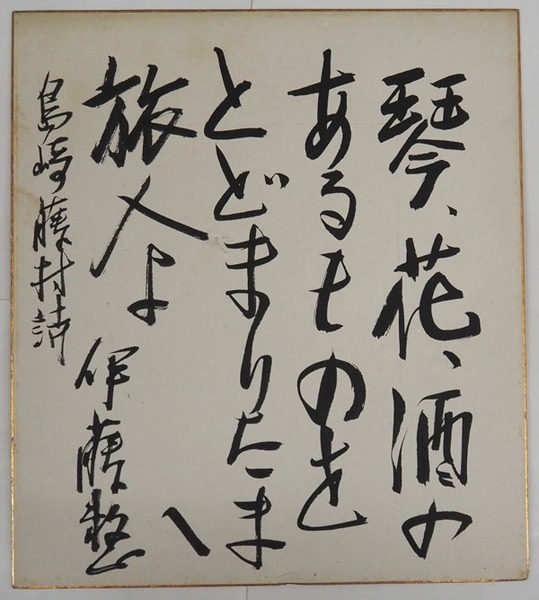 琴、花、酒の
あるものを
とどまりたまへ
旅人よ
伊藤整
島崎藤村詩